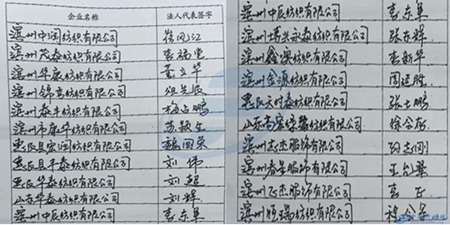 企业名称 法人代表签字
滨州中润纺织有限公司
滨州茂泰纺织有限公司 李福重
滨州华康纺织有限公司
滨州锦喜纺织有限公司
滨州泰丰纺织有限公司 杨占鹏
滨州市康华纺织有限公司
惠民县宏润纺织有限公司 魏国荣
惠民县丰泰纺织有限公司 刘伟
惠民华泰纺织有限公司 刘超
山东华泰纺织有限公司 刘辉
滨州中辰纺织有限公司 李东军
滨州中辰纺织有限公司 李东军
滨州博兴永泰纺织有限公司 张东辉
滨州鑫溟纺织有限公司 李新华
滨州金源纺织有限公司 周建胜
惠民天明泰纺织有限公司 张大鹏
山东高密绿馨纺织有限公司
滨州志杰服饰有限公司
滨州春蕾服饰有限公司
滨州正杰服饰有限公司 李正
滨州恒瑞纺织有限公司